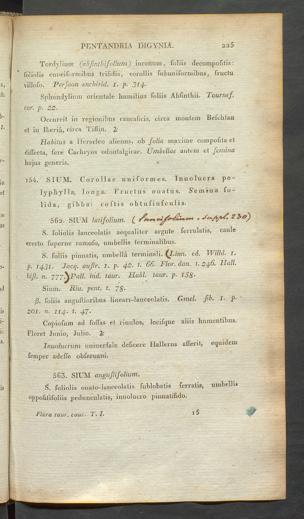 PENTANDRIA DIGYNIA. 225
Tordylium (absinthifolium) incanum, foliis decompositis:
foliolis cuneiformibus trifidis, corollis subuniformibus, fructu
villoso. Persoon enchirid. 1. p. 314.
Sphondylium orientale humilius foliis Absinthii. Tournef.
cor. p. 22.
Occurrit in regionibus caucasicis, circa montem Beschtau
et in Iberiâ, circa Tiflin. ♃
Habitus a Heracleo alienus, ob folia maxime composita et
dissecta, fere Cachryos odontalgicae. Umbellae autem et semina
hujus generis.
154. SIUM. Corollae uniformes. Involucra po-
lyphylla, longa. Fructus ovatus. Semina so-
lida, gibba: costis obtusiusculis.
562. SIUM latifolium. (lancifolium. Suppl. 230)
S. foliolis lanceolatis aequaliter argute serrulatis, caule
erecto superne ramoso, umbellis terminalibus.
S. foliis pinnatis, umbellâ terminali. (Linn. ed. Willd. 1.
p. 1431. Jacq. austr. 1. p. 42. t. 66. Flor. dan. t. 246. Hall.
hist. n. 777.) Pall. ind. taur. Habl. taur. p. 158.
Sium. Riv. pent. t. 78.
β. foliis angustioribus lineari-lanceolatis. Gmel. sib. 1. p.
201. n. 114. t. 47.
Copiosum ad fossas et rivulos, locisque aliis humentibus.
Floret Junio, Julio. ♃
Involucrum universale deesse Hallerus asserit, equidem
semper adesse observavi.
563. SIUM angustifolium.
S. foliolis ovato-lanceolatis sublobatis serratis, umbellis
oppositifoliis pedunculatis, involucro pinnatifido.
Flora taur. cauc. T. I. 15